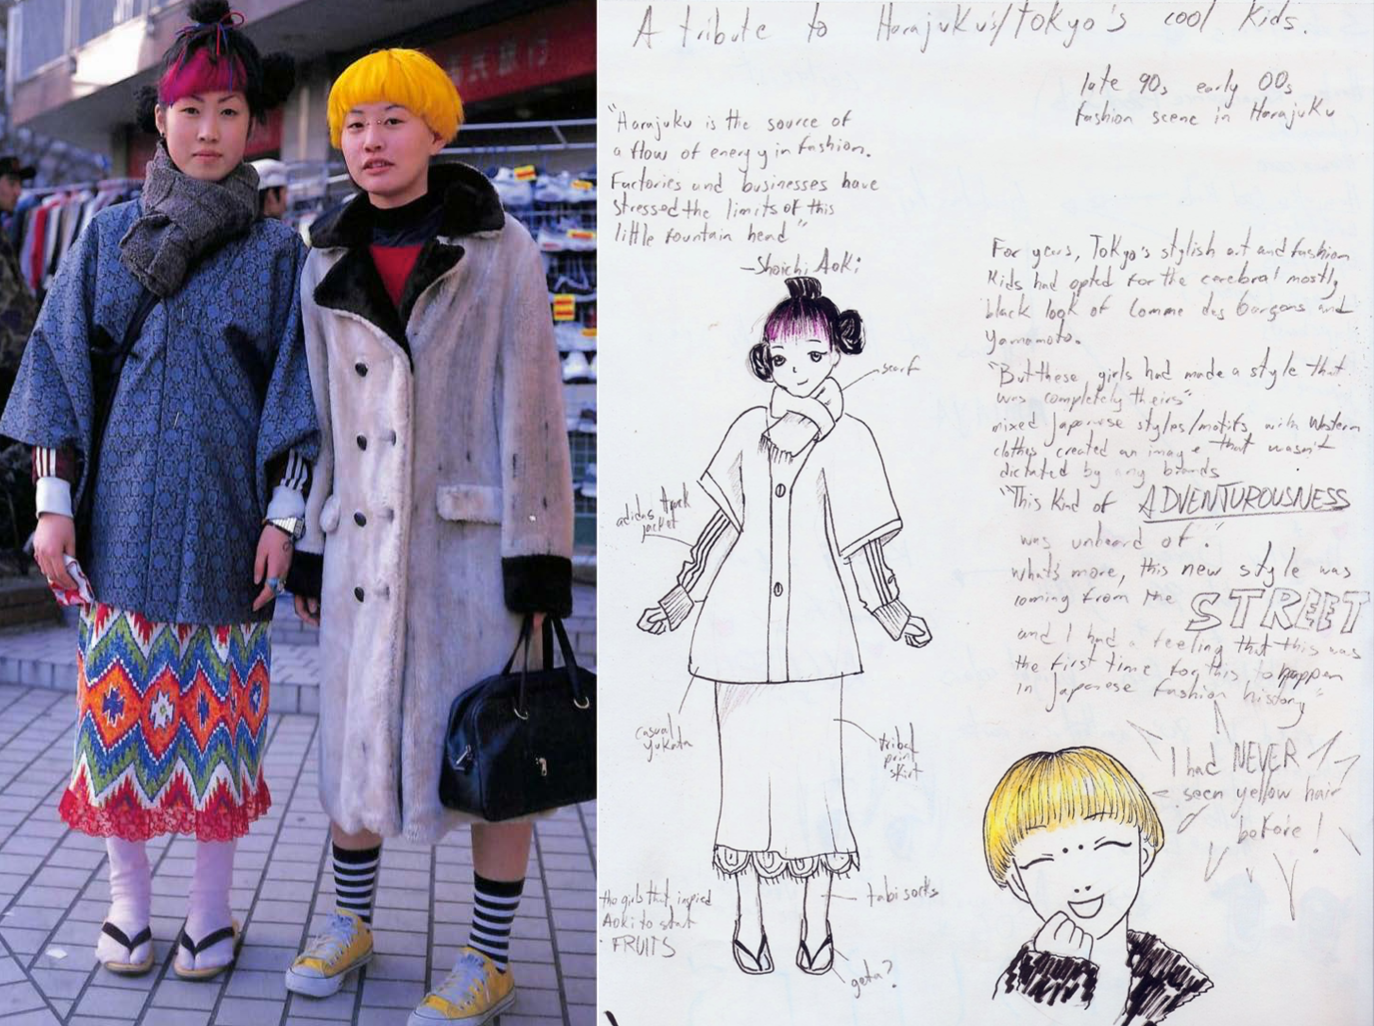 A tribute to Harajuku's/Tokyo's cool kids.
late 90s early 00s
fashion scene in Harajuku
"Harajuku is the source of
a flow of energy in fashion.
Factories and businesses have
stressed the limits of this
little fountain head"
-Shoichi Aoki
For years, Tokyo's stylish art and fashion
kids had opted for the cerebral mostly
black look of Comme des Garçons and
Yamamoto.
"But these girls had made a style that
was completely theirs"
mixed Japanese styles/motifs with Western
clothes, created an image that wasn't
dictated by any brands
"This kind of ADVENTUROUSNESS
was unheard of".
what's more, this new style was
coming from the STREET
and I had a feeling that this was
the first time for this to happen
in Japanese fashion history"
scarf
adidas track
jacket
casual
yukata
tribal
print
skirt
the girls that inspired
Aoki to start
FRUITS
tabi socks
geta?
I had NEVER
seen yellow hair
before!